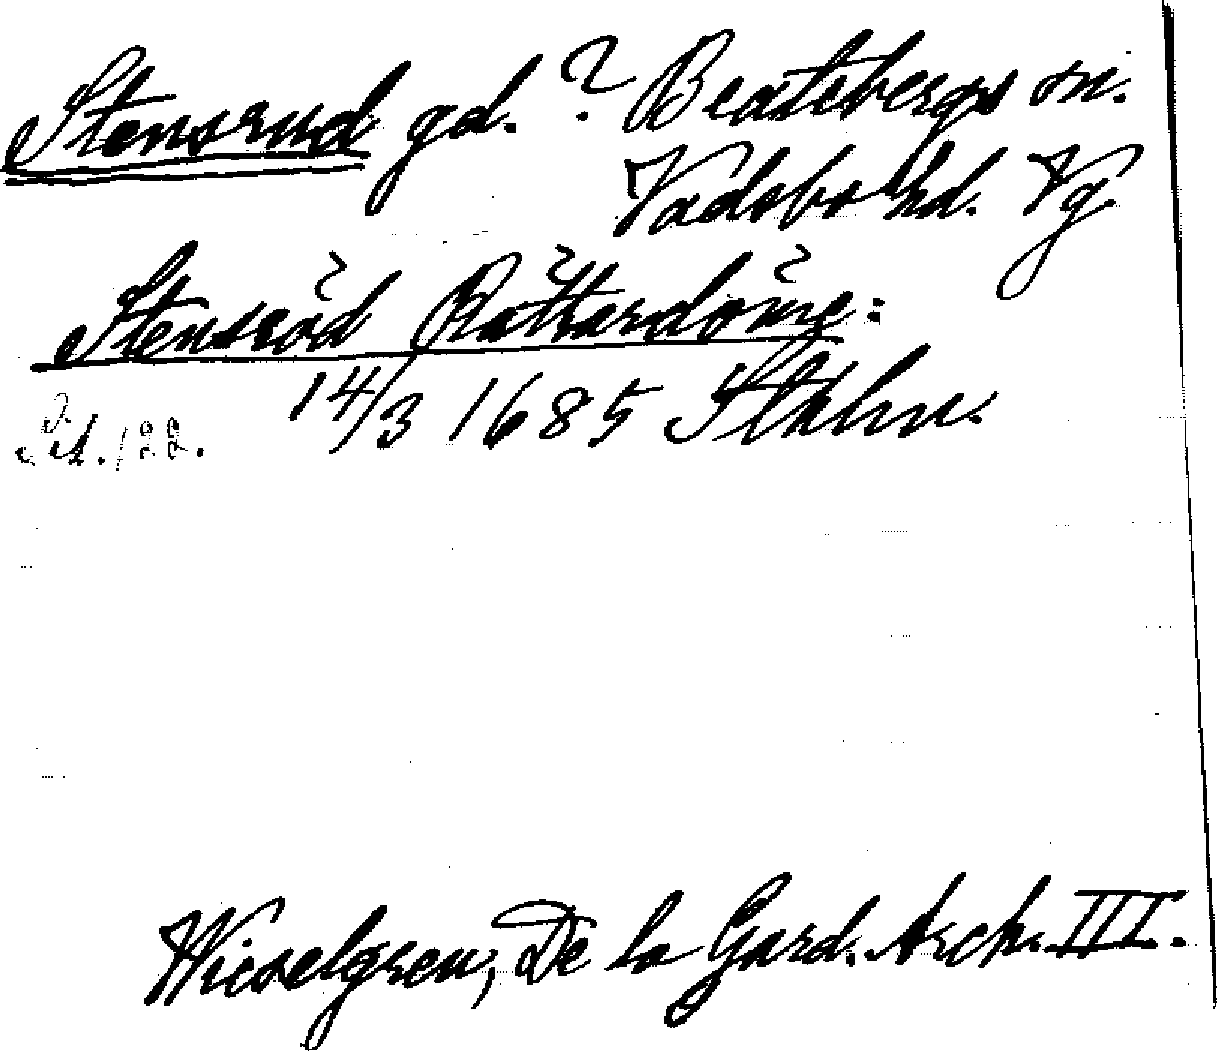 Stensrud gd. ? Beatebergs sn.
Vadsbo hd. Vg
Stensröd Råttardöme:
14/3 1685 Sthlm.
s. 122.
Wieselgren, De la Gard. Arch. III.